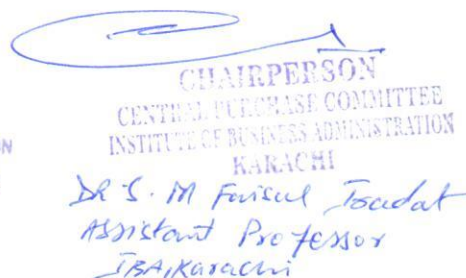 CHAIRPERSON
CENTRAL PURCHASE COMMITTEE
INSTITUTE OF BUSINESS ADMINISTRATION
KARACHI
DR S. M Faisal
Assistant Professor
IBA, Karachi